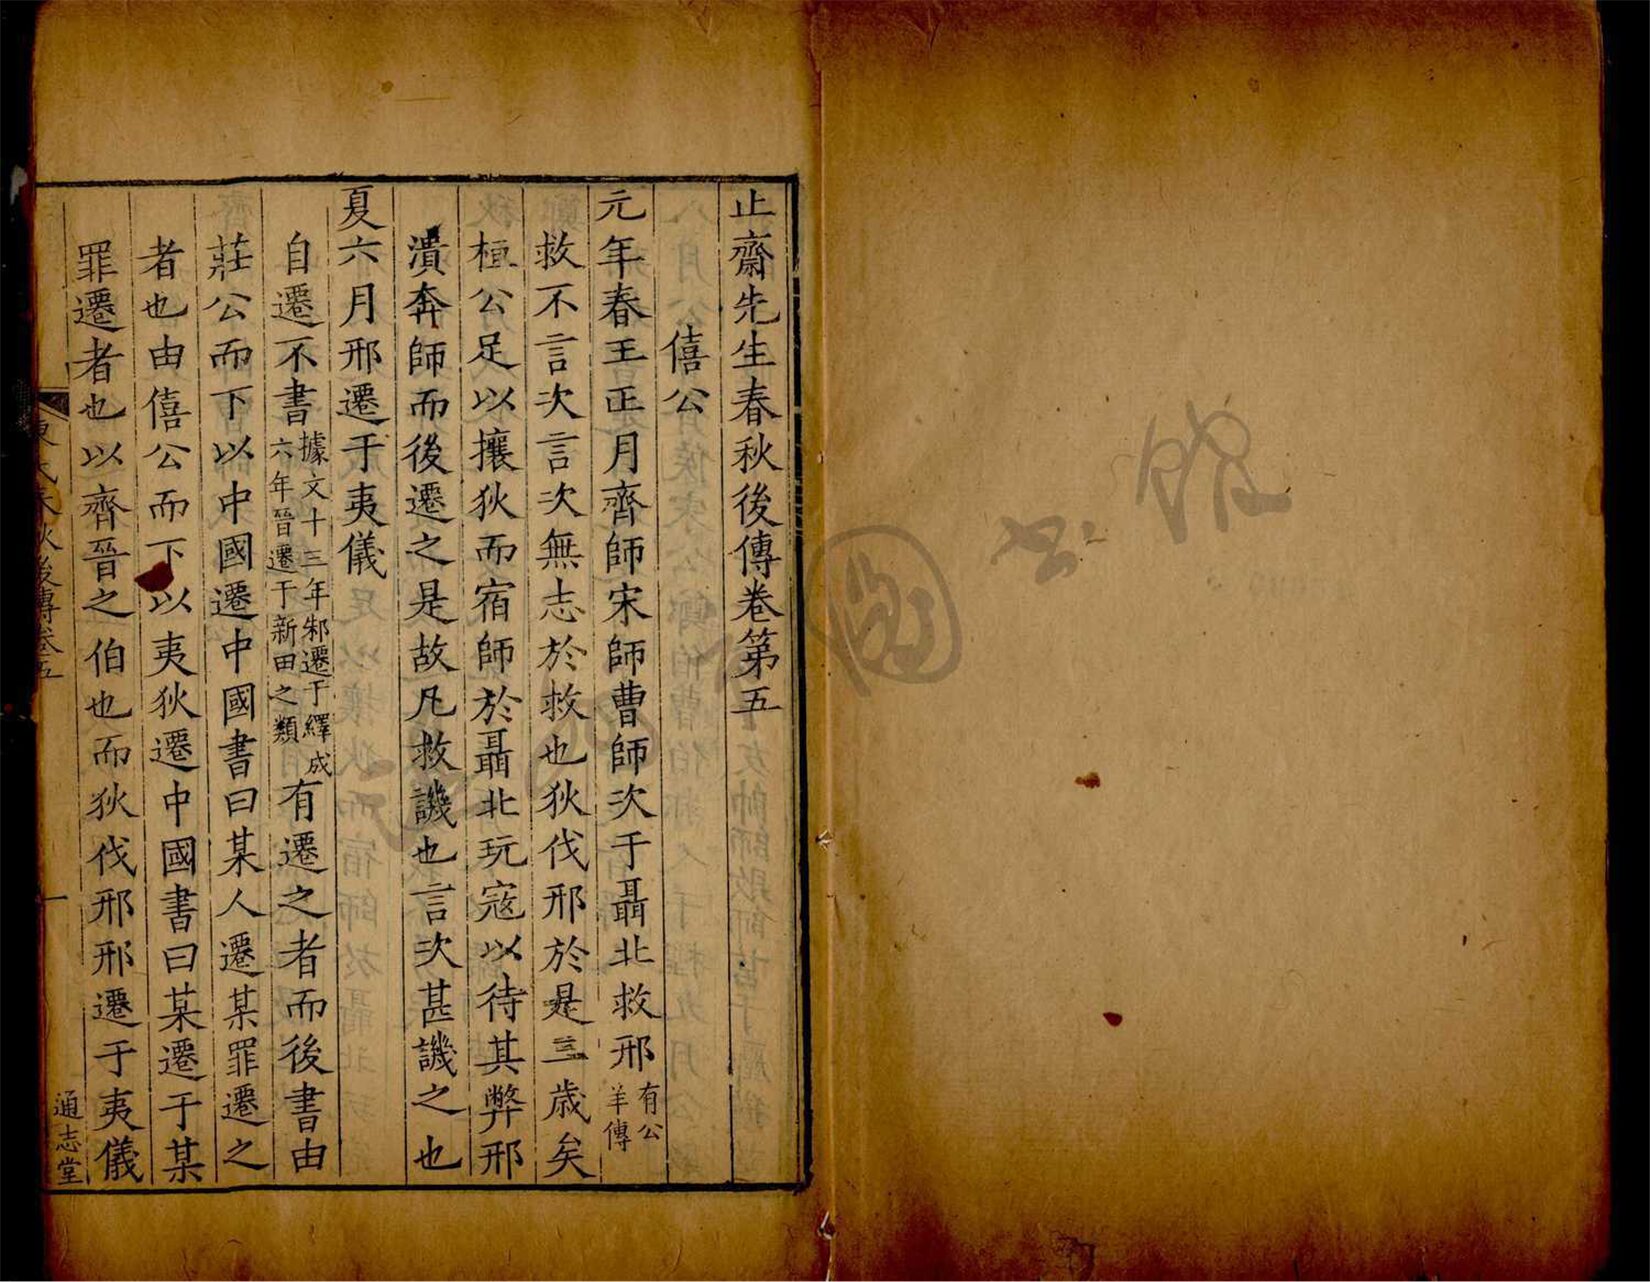 止齋先生春秋後傳卷第五
僖公
元年春王正月齊師宋師曹師次于聶北救邢有公羊傳
救不言次言次無志於救也狄伐邢於是三歲矣
桓公足以攘狄而宿師於聶北玩寇以待其弊邢
潰奔師而後遷之是故凡救譏也言次甚譏之也
夏六月邢遷于夷儀
自遷不書據文十三年邾遷于繹成六年晉遷于新田之類有遷之者而後書由
莊公而下以中國遷中國書曰某人遷某罪遷之
者也由僖公而下以夷狄遷中國書曰某遷于某
罪遷者也以齊晉之伯也而狄伐邢邢遷于夷儀
秋後傳卷五
一
通志堂